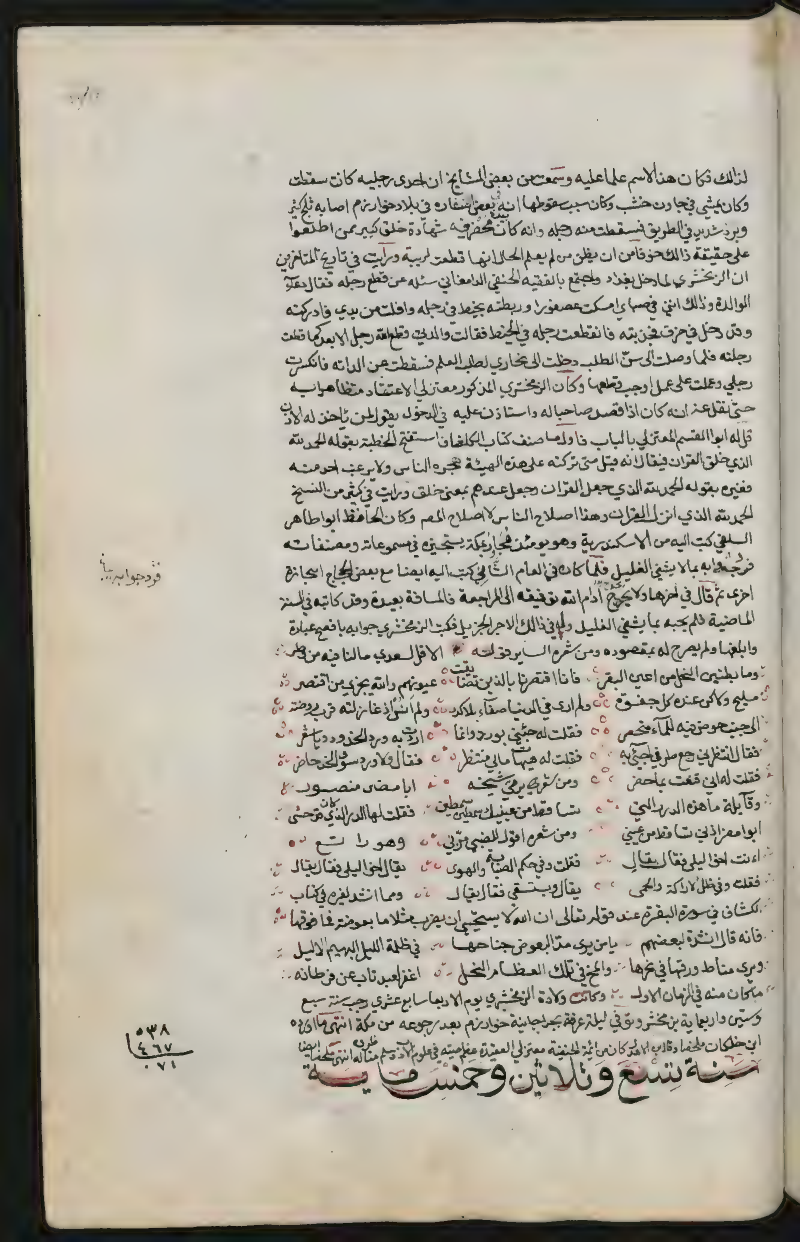 لذالك فكان هذا الاسم علما عليه وسمعت من بعض المشايخ ان احدى رجليه كانت سقطت
وكان يمشي في جاون خشب وكان سبب سقوطها انه في بعض اسفاره في بلاد خوارزم اصابه ثلج كثير
وبرد شديد في الطريق فسقطت منه رجله وانه كان بيده محضر فيه شهادة خلق كثير ممن اطلعوا
على حقيقة ذالك خوفا من ان يظن من لم يعلم الحال انها قطعت لريبة ورايت في تاريخ المتاخرين
ان الزمخشري لما دخل بغداد واجتمع بالفقيه الحنفي الدامغاني سئله عن قطع رجله فقال دعاء
الوالدة وذالك انني في صباي امسكت عصفورا وربطته بخيط في رجله وافلت من يدي فادركته
وقد دخل في خرق فجذبته فانقطعت رجله في الخيط فقالت والدتي وقطع الله رجل الابعد كما قطعت
رجلته فلما وصلت الى سن الطلب رحلت الى بخاري لطلب العلم فسقطت عن الدابه فانكسرت
رجلي وعملت على عمل اوجب قطعها وكان الزمخشري المذكور معتزلي الاعتقاد متظاهرا به
حتى نقل عنه انه كان اذا قصد صاحبا له واستاذن عليه في الدخول يقول لمن ياخذ له الاذن
قل له ابوا القسم المعتزلي بالباب فاول ما صنف كتاب الكشاف استفتح الخطبة بقوله الحمد لله
الذي خلق القران فيقال انه قيل متى تركته على هذه الهيئة هجره الناس ولا يرغب احد منه
فغيره بقوله الحمد لله الذي جعل القران وجعل عندهم بمعنى خلق ورايت في كثير من النسخ
الحمد لله الذي انزل القران وهذا اصلاح الناس لا اصلاح المصم وكان الحافظ ابوا طاهر
السلفي كتب اليه من الاسكندرية وهو يومئذ مجاور بمكة يستجيزه في مسموعاته ومصنفاته
فرد جوابه بما لا يشفي الغليل فلما كان في العام الثاني كتب اليه ايضا مع بعض الحجاج استجازة
اخرى ثم قال في اخرها ولا يحوج ادام الله توفيقه الى المراجعة فالمسافة بعيدة وقد كاتبه في السنة
الماضية فلم يجبه بما يشفي الغليل وله في ذالك الاجر الجزيل فكتب الزمخشري جوابه بافصح عبارة
وابلغها ولم يصرح له بمقصوده ومن شعره الساير قوله الا قل لسعدي ما لنا فيه من وطر
وما يطبين النجل من اعين البقر فانا اقتصرنا بالذين تضايقت عيونهم والله يجزي من اقتصر
مليح ولاكن عنده كل جفوة ولم ار في الدنيا صفاء بلا كدر ولم انس اذ غازلته قرب روضة
الى جنب حوض فيه للماء منحصر فقلت له جئني بورد وانما اردت به ورد الخدود وما شعر
فقال انتظرني رجع طرف اجئ به فقلت له هيهات مالي منتظر فقال ولا ورد سوى الخد حاضر
فقلت له اني قنعت بما حضر ومن شعره يرثي شيخه ابا مضر منصور
وقايلة ما هذه الدرر التي تساقط من عينيك سمطين سمطين فقلت لها الدر الذي كان قد حشى
ابوا مضر اذني تساقط من عيني ومن شعره اقول لظبي مر بي وهو راتع
اءنت اخو ليلى فقال يقال فقلت وفي حكم الصبابة والهوى يقال اخو ليلى فقال يقال
فقلت وفي ظل الاراكة والحمى يقال ويستقي فقال يقال ومما انشد لغيره في كتاب
الكشاف في سورة البقرة عند قوله تعالى ان الله لا يستحيي ان يضرب مثلا ما بعوضة فما فوقها
فانه قال انشدت لبعضهم يا من يرى مد البعوض جناحها في ظلمة الليل البهيم الاليل
ويرى مناط ورقها في نحرها والمخ في تلك العظام النحل اغفر لعبد تاب عن فرطاته
ما كان منه في الزمان الاول وكانت ولادة الزمخشري يوم الاربعا سابع عشري رجب سنة سبع
وستين واربعماية بزمخشر وتوفي ليلة عرفة بجرجانية خوارزم بعد رجوعه من مكة انتهى
ابن خلكان ملخصا وقال كان من ائمة الحنفية معتزلي العقيدة انتهى ملخصا ايضا
سنة تسع وثلاثين وخمس ماية
فرد جوابه
٥٣٨
٤٦٧
٠٧١